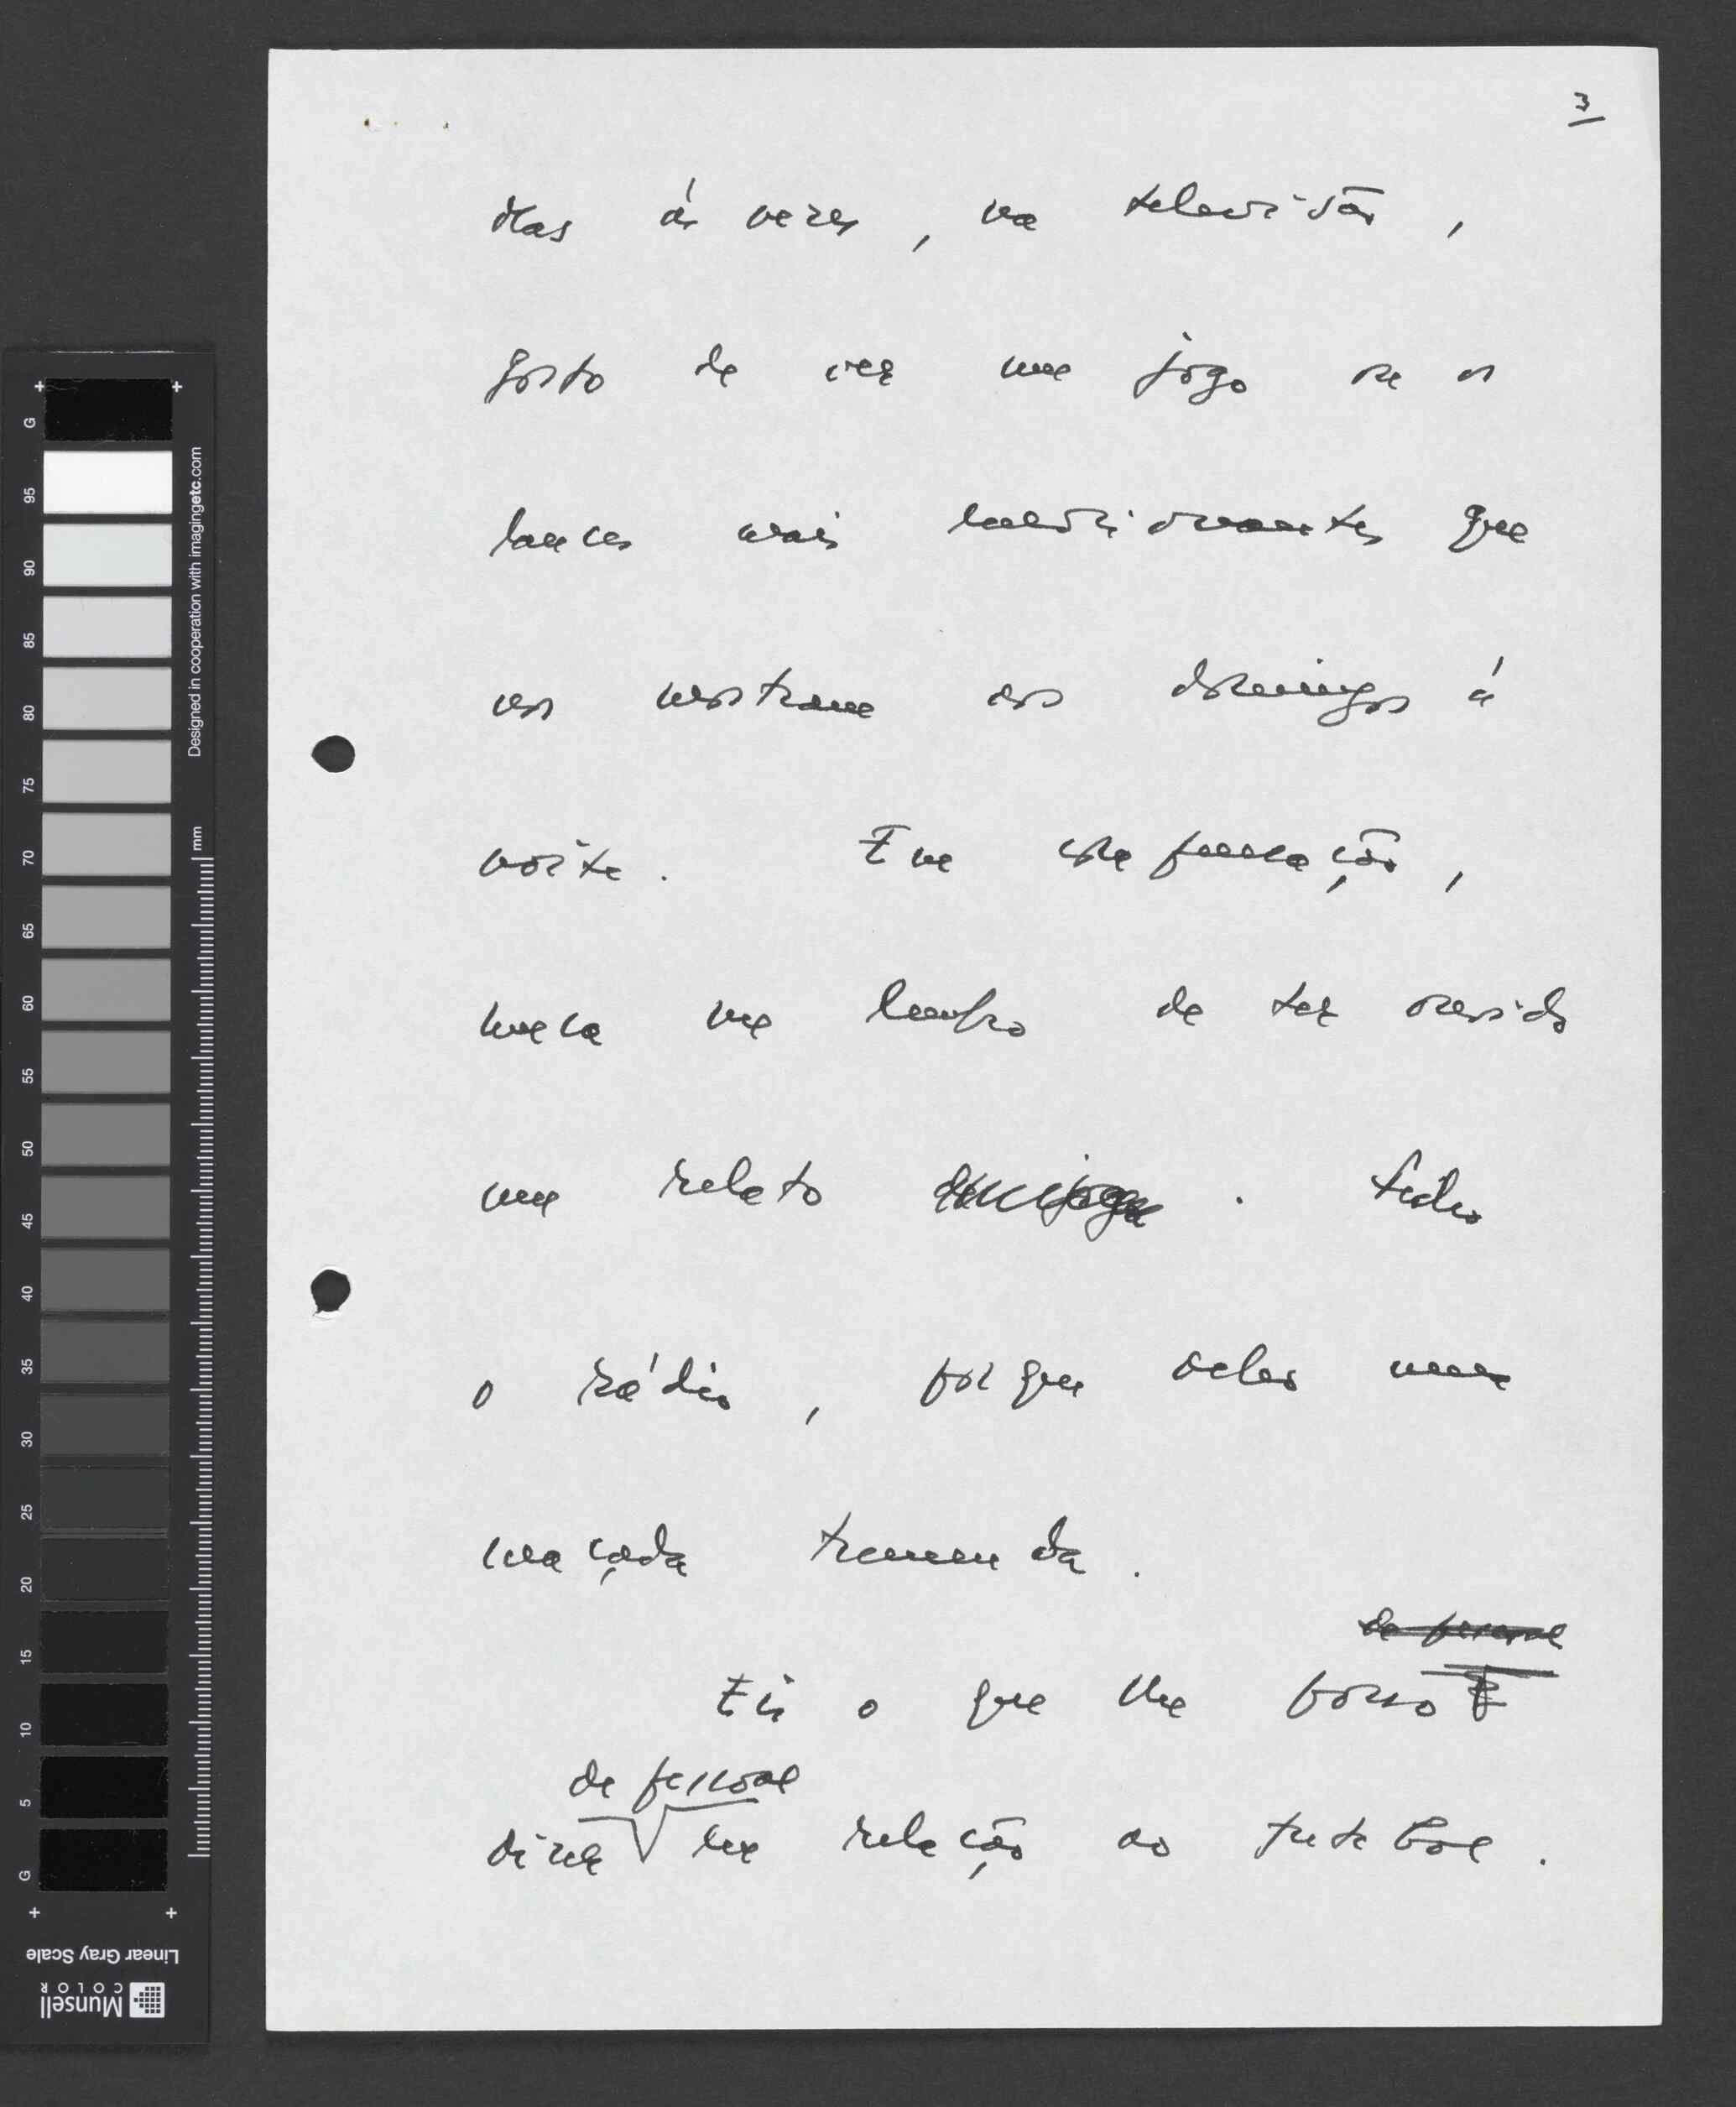 3
Mas ás vezes, na televisão,
gosto de ver um jogo ou os
lances mais emocionantes que
nos mostram aos domingos á
noite. Em compensação,
nunca me lembro de ter ouvido
um relato . Fecho
o rádio, porque acho uma
maçada tremenda.
de pessoal
Eis o que lhe posso
de pessoal
dizer em relação ao futebol.
G
95
90
85
80
75
70
65
60
55
50
45
40
35
30
25
20
15
10
5
G
Designed in cooperation with imagingetc.com
mm
Linear Gray Scale
Munsell
COLOR